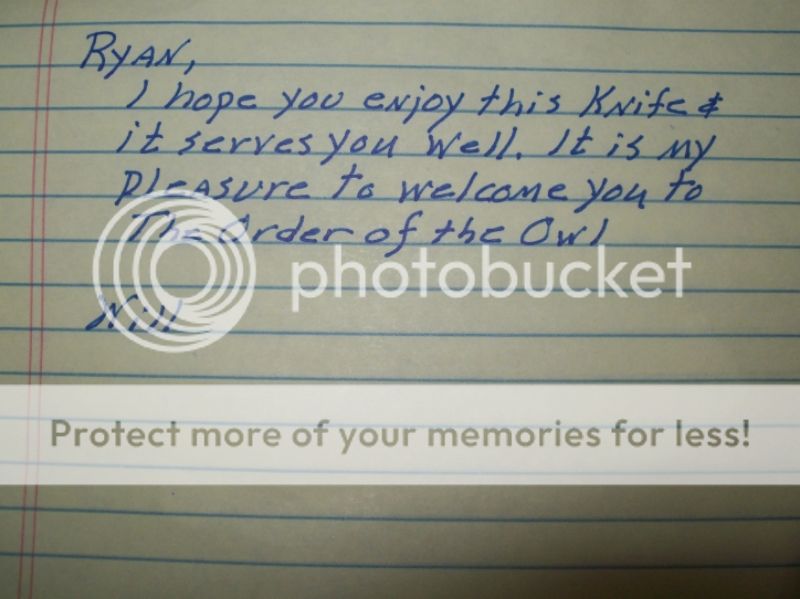 Ryan,
I hope you enjoy this Knife &
it serves you well. It is my
pleasure to welcome you to
The Order of the Owl
photobucket
Will
Protect more of your memories for less!